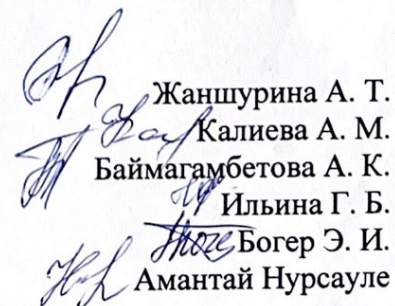 Жаншурина А. Т.
Калиева А. М.
Баймагамбетова А. К.
Ильина Г. Б.
Богер Э. И.
Амантай Нурсауле